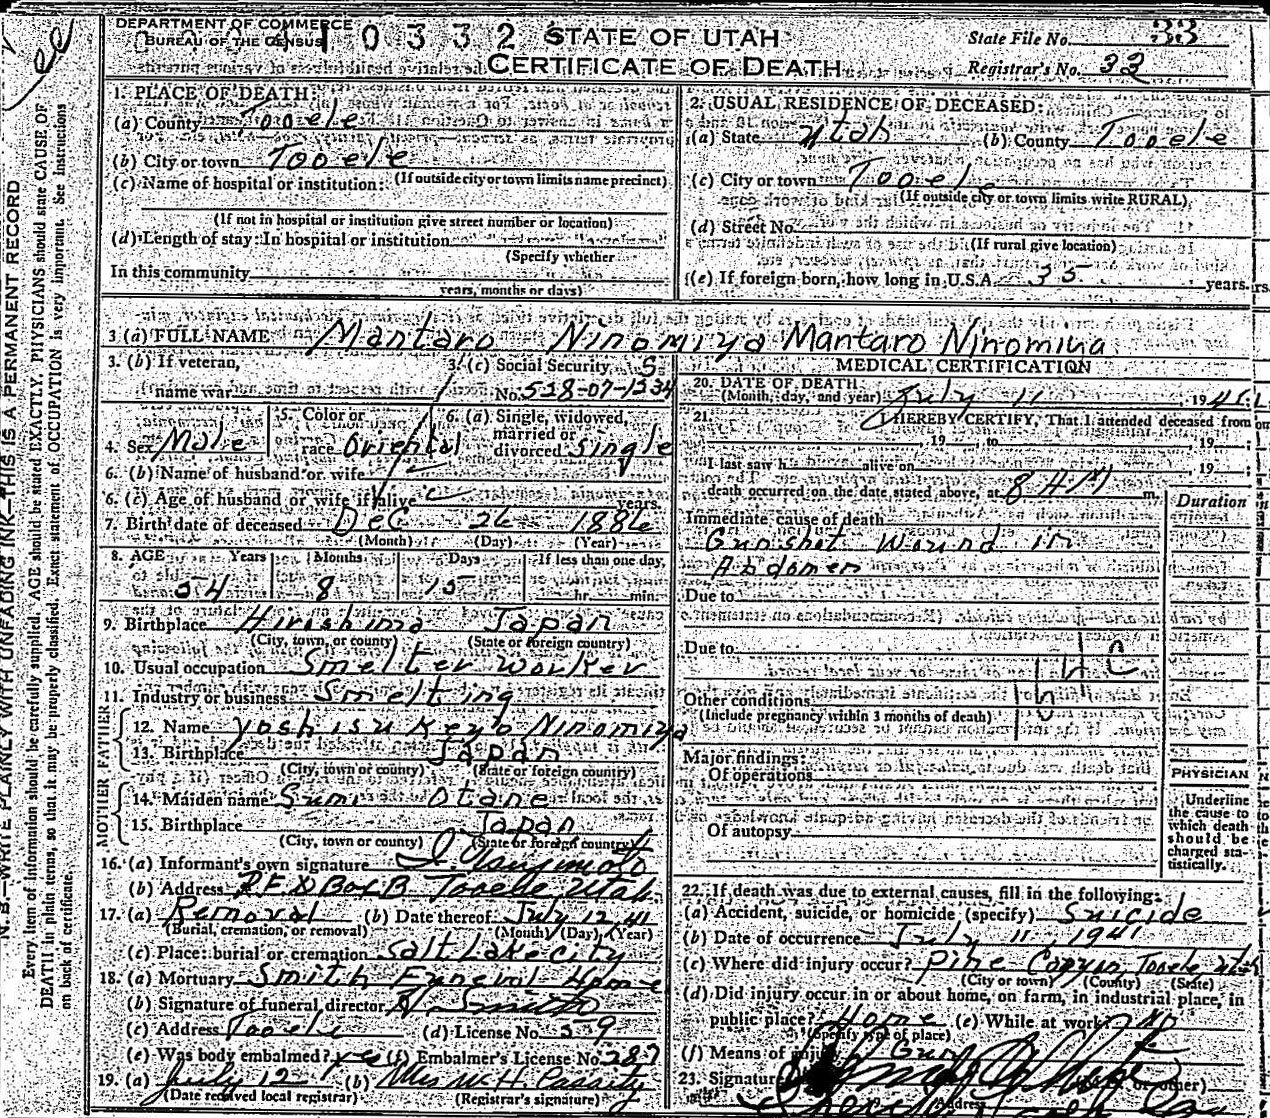 DEPARTMENT OF COMMERCE
BUREAU OF THE CENSUS
0332
STATE OF UTAH
CERTIFICATE OF DEATH
State File No. 33
Registrar's No. 33
N. B.—WRITE PLAINLY WITH UNFADING INK—THIS IS A PERMANENT RECORD
Every item of information should be carefully supplied. AGE should be stated EXACTLY. PHYSICIANS should state CAUSE OF
DEATH in plain terms, so that it may be properly classified. Exact statement of OCCUPATION is very important. See Instructions
on back of certificate.
1. PLACE OF DEATH:
(a) County Tooele
(b) City or town Tooele
(If outside city or town limits name precinct)
(c) Name of hospital or institution:
(If not in hospital or institution give street number or location)
(d) Length of stay: In hospital or institution
(Specify whether
In this community
years, months or days)
2. USUAL RESIDENCE OF DECEASED:
(a) State Utah (b) County Tooele
(c) City or town Tooele
(If outside city or town limits write RURAL)
(d) Street No.
(If rural give location)
(e) If foreign born, how long in U.S.A. 35 years.
3 (a) FULL NAME Mantaro Ninomiya Mantaro Ninomiya
3. (b) If veteran,
name war
3. (c) Social Security
No. 528-07-1234
4. Sex Male
5. Color or
race Oriental
6. (a) Single, widowed,
married or
divorced Single
6. (b) Name of husband or wife
6. (c) Age of husband or wife if alive years.
7. Birth date of deceased Dec 26 1886
(Month) (Day) (Year)
8. AGE Years Months Days If less than one day,
54 8 15 hr. min.
9. Birthplace Hiroshima Japan
(City, town, or county) (State or foreign country)
10. Usual occupation Smelter Worker
11. Industry or business Smelting
FATHER
12. Name Ninomiya
13. Birthplace Japan
(City, town or county) (State or foreign country)
MOTHER
14. Maiden name Sumi Otane
15. Birthplace Japan
(City, town or county) (State or foreign country)
16. (a) Informant's own signature
(b) Address R.F.D Box B Tooele Utah
17. (a) Removal (b) Date thereof July 12 41
(Burial, cremation, or removal) (Month) (Day) (Year)
(c) Place: burial or cremation Salt Lake City
18. (a) Mortuary Smith Funeral Home
(b) Signature of funeral director Smith
(c) Address Tooele (d) License No. 59
(e) Was body embalmed? yes (f) Embalmer's License No. 287
19. (a) July 12 (b) Mrs W. H. Cassity
(Date received local registrar) (Registrar's signature)
MEDICAL CERTIFICATION
20. DATE OF DEATH
(Month, day, and year) July 11, 1941
21. I HEREBY CERTIFY, That I attended deceased from
, 19 , to , 19 ;
I last saw h alive on , 19 ;
death occurred on the date stated above, at 8 AM m.
Duration
Immediate cause of death
Gunshot Wound in
Abdomen
Due to
Due to
Other conditions
(Include pregnancy within 3 months of death)
Major findings:
Of operations
Of autopsy
PHYSICIAN
Underline
the cause to
which death
should be
charged sta-
tistically.
22. If death was due to external causes, fill in the following:
(a) Accident, suicide, or homicide (specify) Suicide
(b) Date of occurrence July 11, 1941
(c) Where did injury occur? Pine Canyon, Tooele Utah
(City or town) (County) (State)
(d) Did injury occur in or about home, on farm, in industrial place, in
public place? Home (e) While at work? No
(Specify type of place)
(f) Means of injury Gun
23. Signature or other)
Address